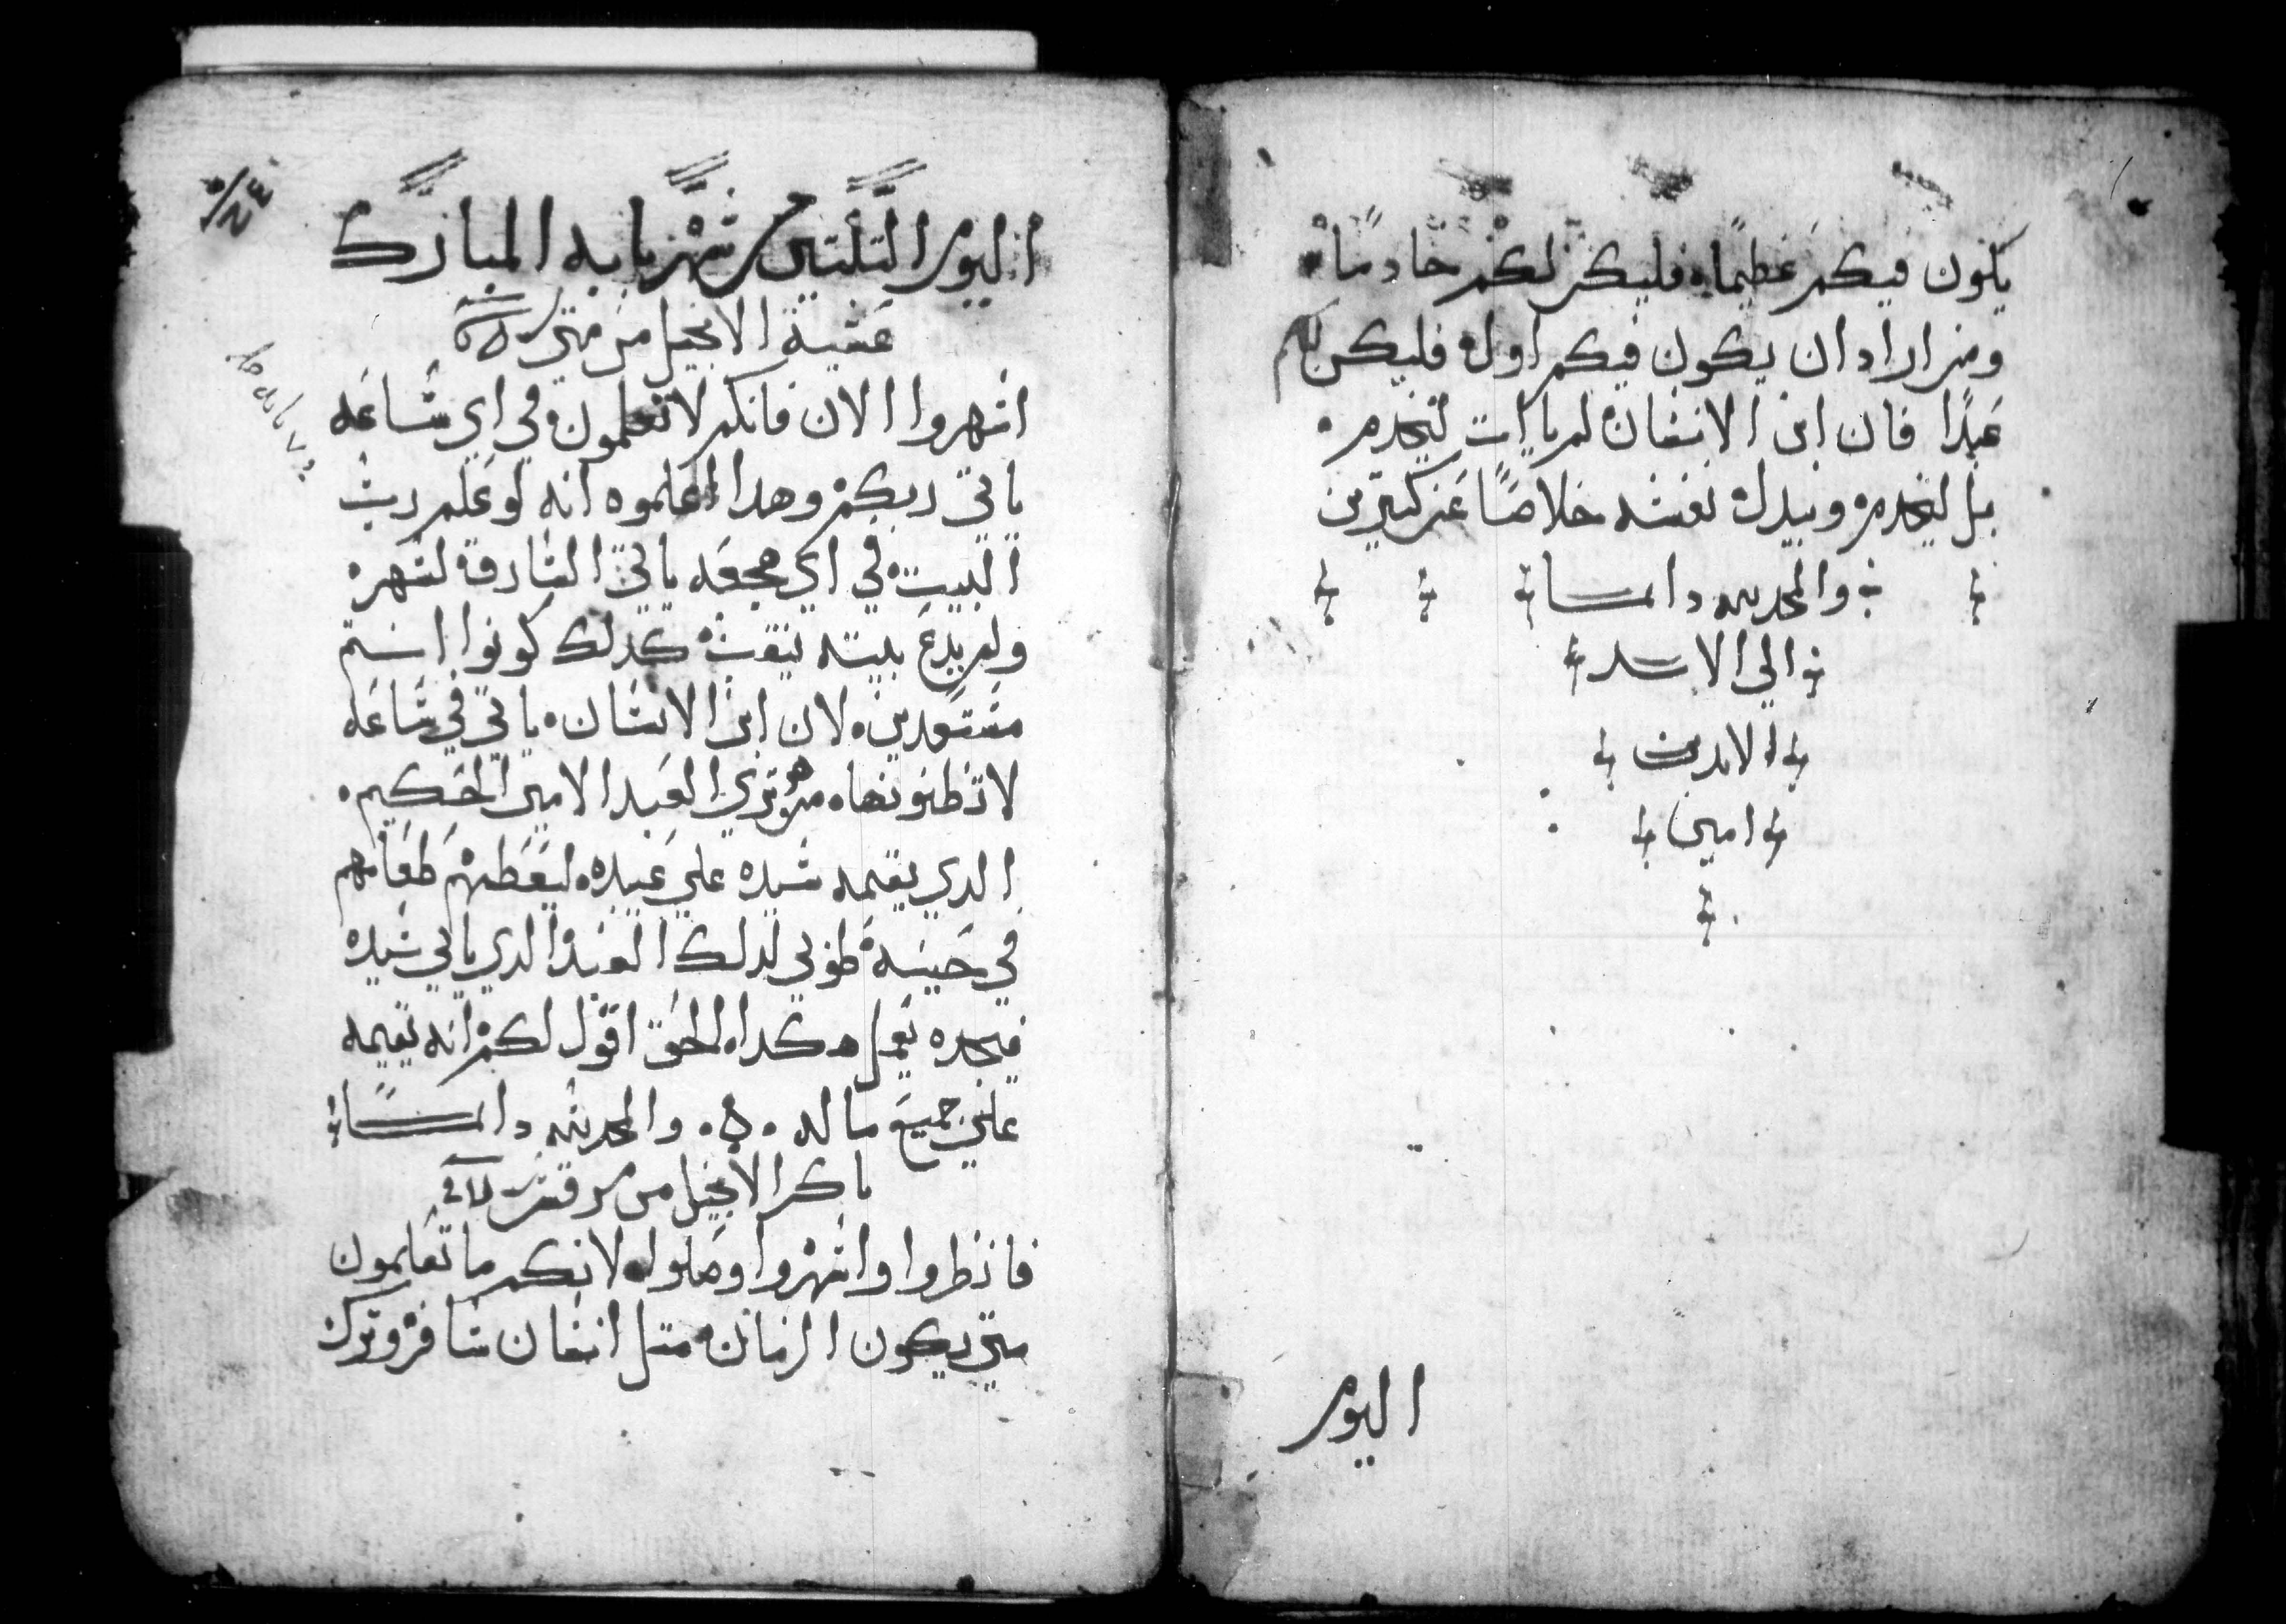 يكون فيكم عظيمًا فليكن لكم خادمًا
ومن اراد ان يكون فيكم اول فليكن لكم
عبدًا فان ابن الانسان لم يات ليخدم
بل ليخدم ويبدل نفسه خلاصًا عن كتيرين
والمجد لله دايما
الي الابد
الابدين
امين
اليوم
اليوم التلتين من شهر بابه المبارك
عشية الانجيل من متي
اسهروا الان فانكم لا تعلمون في اي ساعه
ياتي ربكم وهدا اعلموه انه لو علم رب
البيت في اي هجعه ياتي السارق لسهر
ولم يدع بيته ينقب كدلك كونوا انتم
مستعدين لان ابن الانسان ياتي في ساعه
لا تظنونها من هو تري العبد الامين الحكيم
الدي يقيمه سيده علي عبيده ليعطهم طعامهم
في حينه طوبي لدلك العبد الدي ياتي سيده
فيجده يعمل هكدا الحق اقول لكم انه يقيمه
علي جميع ماله والمجد لله دايما
باكر الانجيل من مرقس
فانظروا واسهروا وصلوا لانكم ما تعلمون
متي يكون الزمان متل انسان سافر وترك